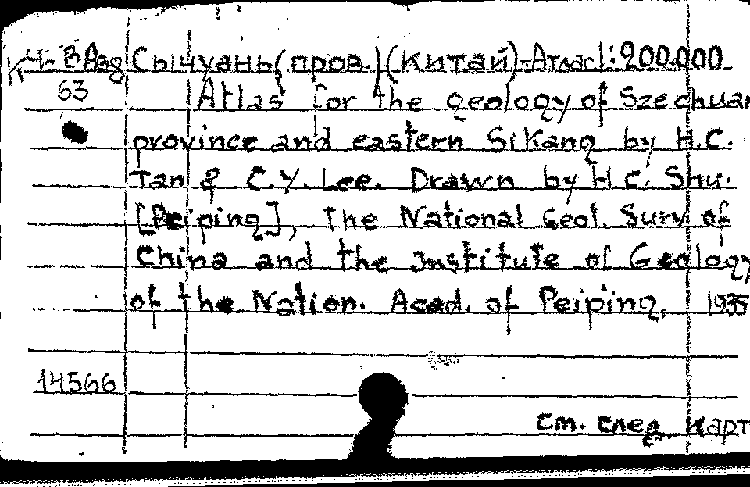 Сычуань (пров.) (Китай)-Атлас 1:200.000
63
Atlas for the geology of Szechuan
province and eastern Sikang by H.C.
Tan & C.Y. Lee. Drawn by H C. Shu.
[Peiping], The National Geol. Surv of
China and the Institute of Geology
of the Nation. Acad. of Peiping, 1935
14566
см. след. карт